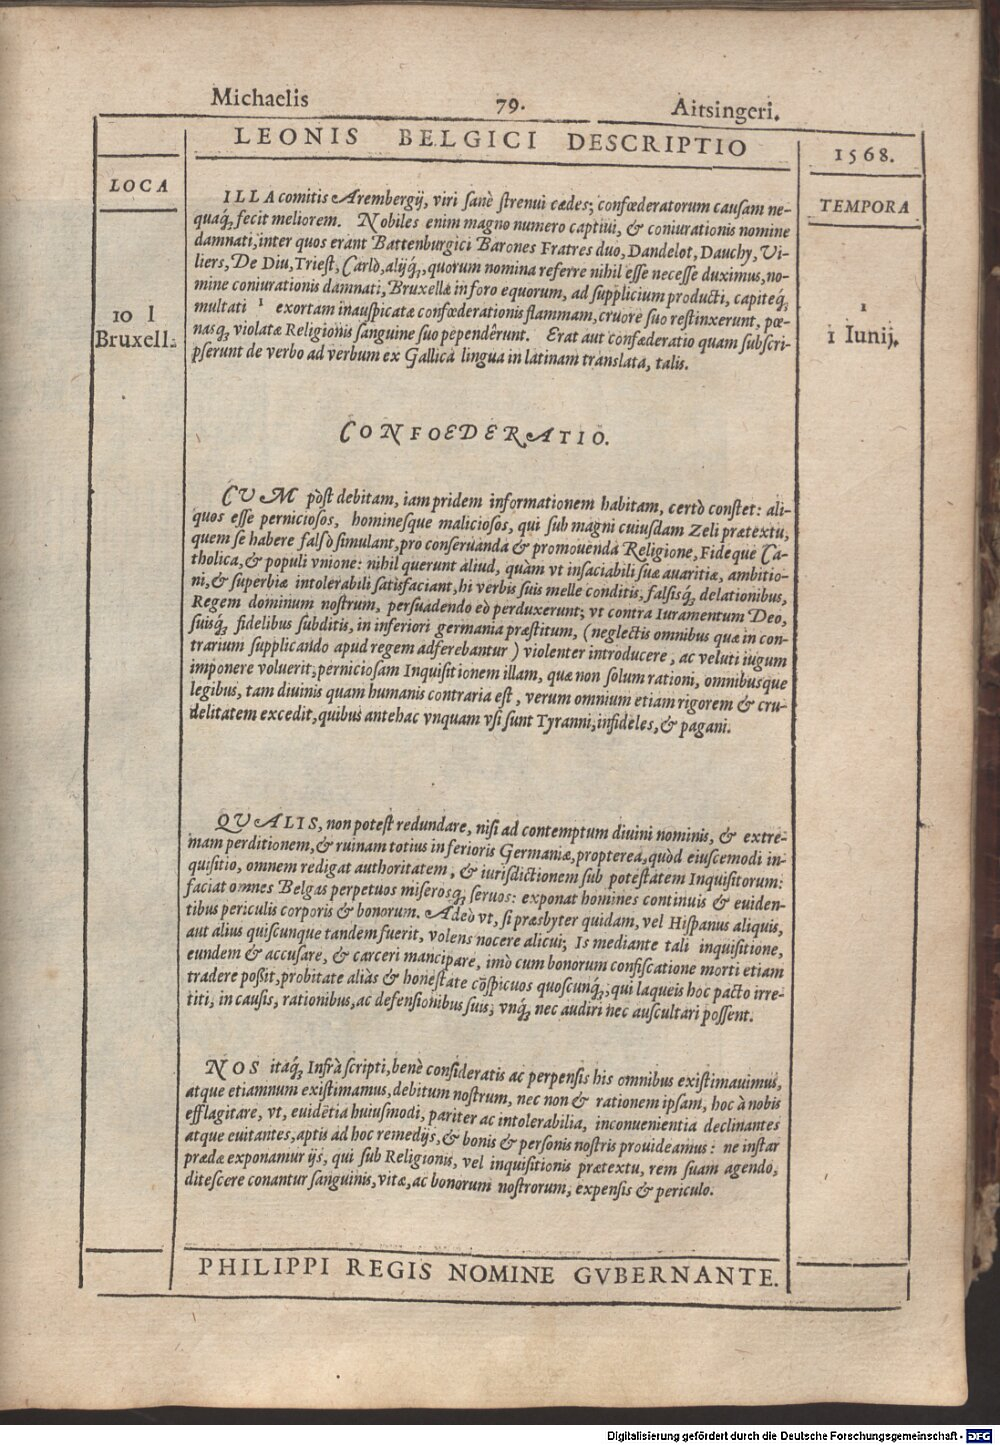 Michaelis 79. Aitsingeri.
LEONIS BELGICI DESCRIPTIO
1568.
LOCA
TEMPORA
ILLA comitis Arembergij, viri sanè strenui cædes; confœderatorum causam ne-
quaq́ꝫ fecit meliorem. Nobiles enim magno numero captiui, & coniurationis nomine
damnati, inter quos erant Battenburgici Barones Fratres duo, Dandelot, Dauchy, Vi-
liers, De Diu, Triest, Carlò, alijq́ꝫ, quorum nomina referre nihil esse necesse duximus, no-
mine coniurationis damnati, Bruxellæ in foro equorum, ad supplicium producti, capiteq́ꝫ
multati 1 exortam inauspicatæ confœderationis flammam, cruore suo restinxerunt, pœ-
nasq́ꝫ violatæ Religionis sanguine suo pependêrunt. Erat aut confæderatio quam subscri-
pserunt de verbo ad verbum ex Gallica lingua in latinam translata, talis.
10 1
Bruxell.
1
1 Iunij.
CONFOEDERATIO.
CVM pòst debitam, iam pridem informationem habitam, certò constet: ali-
quos esse perniciosos, hominesque maliciosos, qui sub magni cuiusdam Zeli prætextu,
quem se habere falsò simulant, pro conseruanda & promouenda Religione, Fideque Ca-
tholica, & populi vnione: nihil querunt aliud, quàm vt insaciabili suæ auaritiæ, ambitio-
ni, & superbiæ intolerabili satisfaciant, hi verbis suis melle conditis, falsisq́ꝫ delationibus,
Regem dominum nostrum, persuadendo eò perduxerunt; vt contra Iuramentum Deo,
suisq́ꝫ fidelibus subditis, in inferiori germania præstitum, (neglectis omnibus quæ in con-
trarium supplicando apud regem adferebantur) violenter introducere, ac veluti iugum
imponere voluerit; perniciosam Inquisitionem illam, quæ non solum rationi, omnibusque
legibus, tam diuinis quam humanis contraria est, verum omnium etiam rigorem & cru-
delitatem excedit, quibus antehac vnquam vsi sunt Tyranni, infideles, & pagani.
QVALIS, non potest redundare, nisi ad contemptum diuini nominis, & extre-
mam perditionem, & ruinam totius inferioris Germaniæ, propterea, quòd eiuscemodi in-
quisitio, omnem redigat authoritatem, & iurisdictionem sub potestatem Inquisitorum:
faciat omnes Belgas perpetuos miserosq́ꝫ seruos: exponat homines continuis & euiden-
tibus periculis corporis & bonorum. Adeò vt, si præsbyter quidam, vel Hispanus aliquis,
aut alius quiscunque tandem fuerit, volens nocere alicui; Is mediante tali inquisitione,
eundem & accusare, & carceri mancipare, imò cum bonorum confiscatione morti etiam
tradere poßit, probitate aliàs & honestate cõspicuos quoscunq́ꝫ; qui laqueis hoc pacto irre-
titi, in causis, rationibus, ac defensionibus suis, vnq́ꝫ nec audiri nec auscultari possent.
NOS itaq́ꝫ Infrà scripti, benè consideratis ac perpensis his omnibus existimauimus,
atque etiamnum existimamus, debitum nostrum, nec non & rationem ipsam, hoc à nobis
efflagitare, vt, euidẽtia huiusmodi, pariter ac intolerabilia, inconuenientia declinantes
atque euitantes, aptis ad hoc remedijs, & bonis & personis nostris prouideamus: ne instar
prædæ exponamur ijs, qui sub Religionis, vel inquisitionis prætextu, rem suam agendo,
ditescere conantur sanguinis, vitæ, ac bonorum nostrorum, expensis & periculo.
PHILIPPI REGIS NOMINE GVBERNANTE.
Digitalisierung gefördert durch die Deutsche Forschungsgemeinschaft - DFG